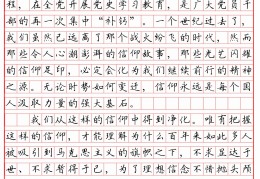 程，在全党开展党史学习教育，是广大党员干
部的再一次集中“补钙”。一个世纪过去了，
我们虽然已远离了那个战火纷飞的时代，然而
那些令人心潮澎湃的信仰故事，那些光芒闪耀
的信仰足印，必定会化为我们继续前行的精神
之源。无论时势如何变迁，信仰永远是每个国
人汲取力量的强大基石。
我们从这样的信仰中得到净化。唯有把握
这样的信仰，才能理解为什么百年来如此多人
被吸引到马克思主义的旗帜之下，不求显达于
世、不求暂得于己，为了理想信念不惜抛头颅